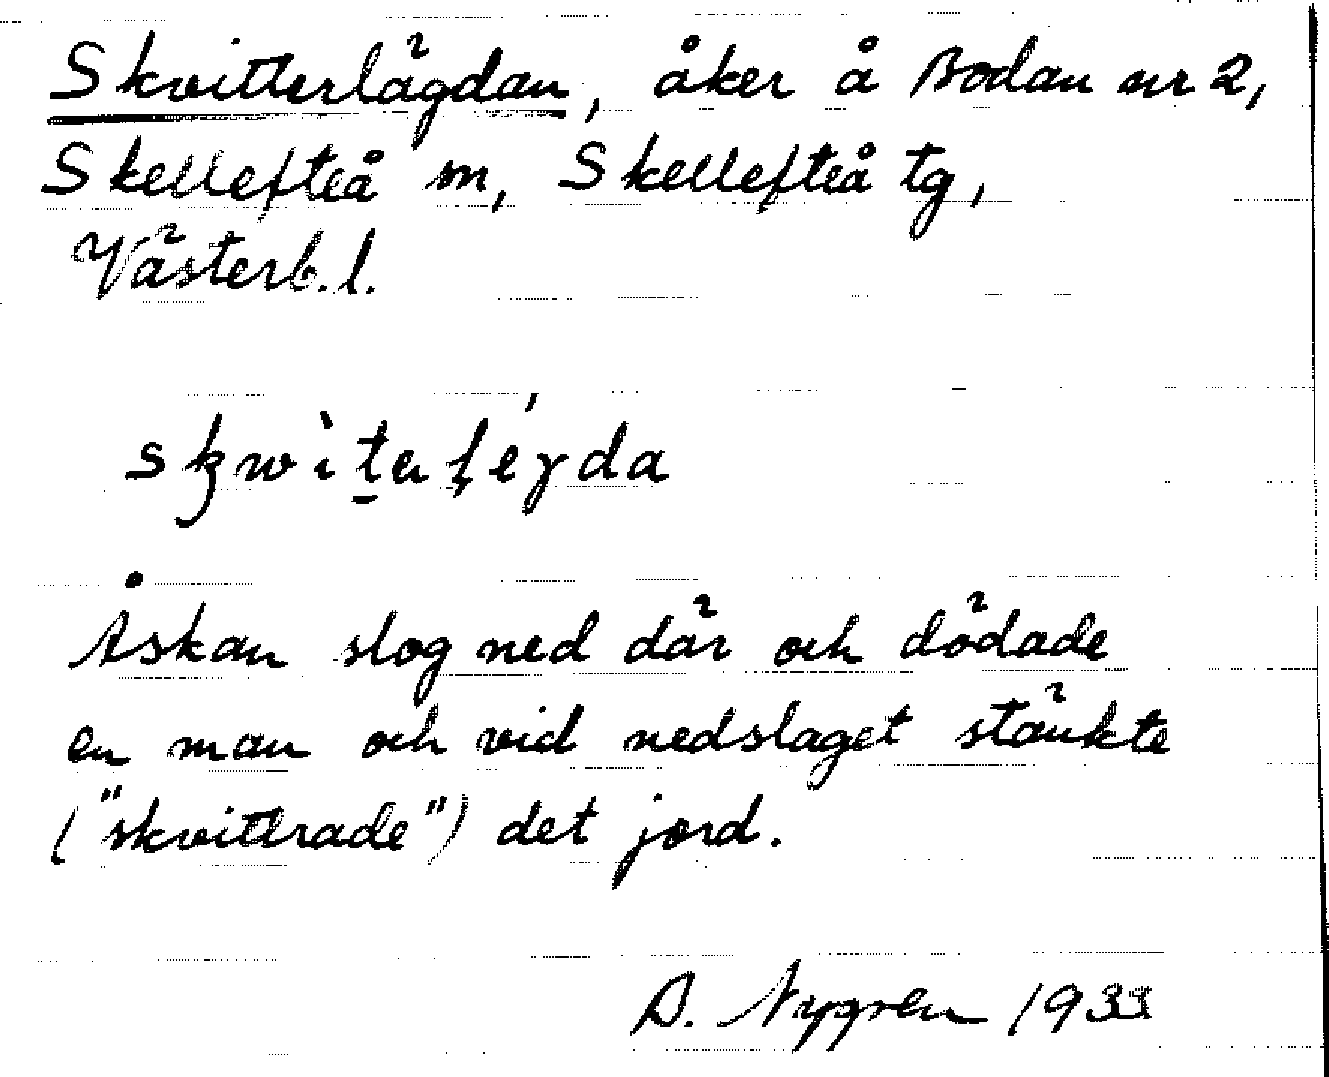 Skvitterlägdan, åker å Bodan nr 2,
Skellefteå sn, Skellefteå tg,
Västerb.l.
Åskan slog ned där och dödade
en man och vid nedslaget stänkte
("skvittrade") det jord.
Nygren 1933